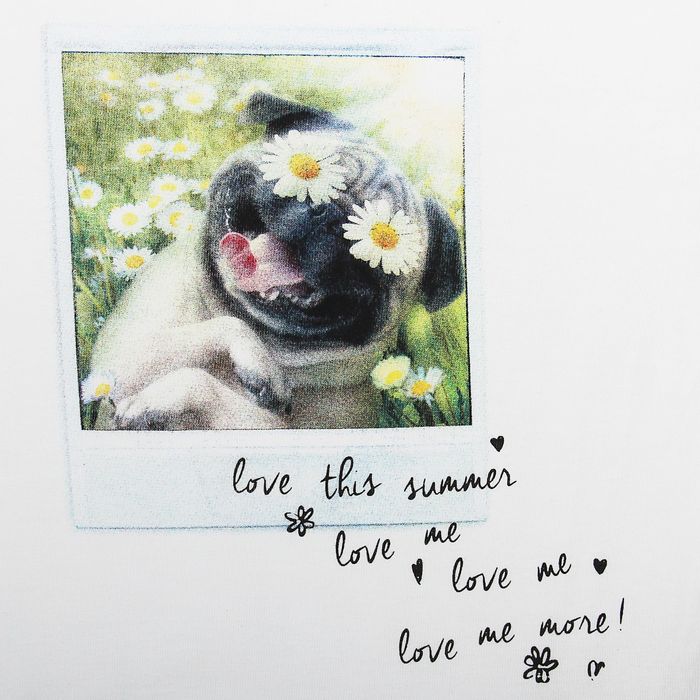 love this summer
love me
love me
love me more!